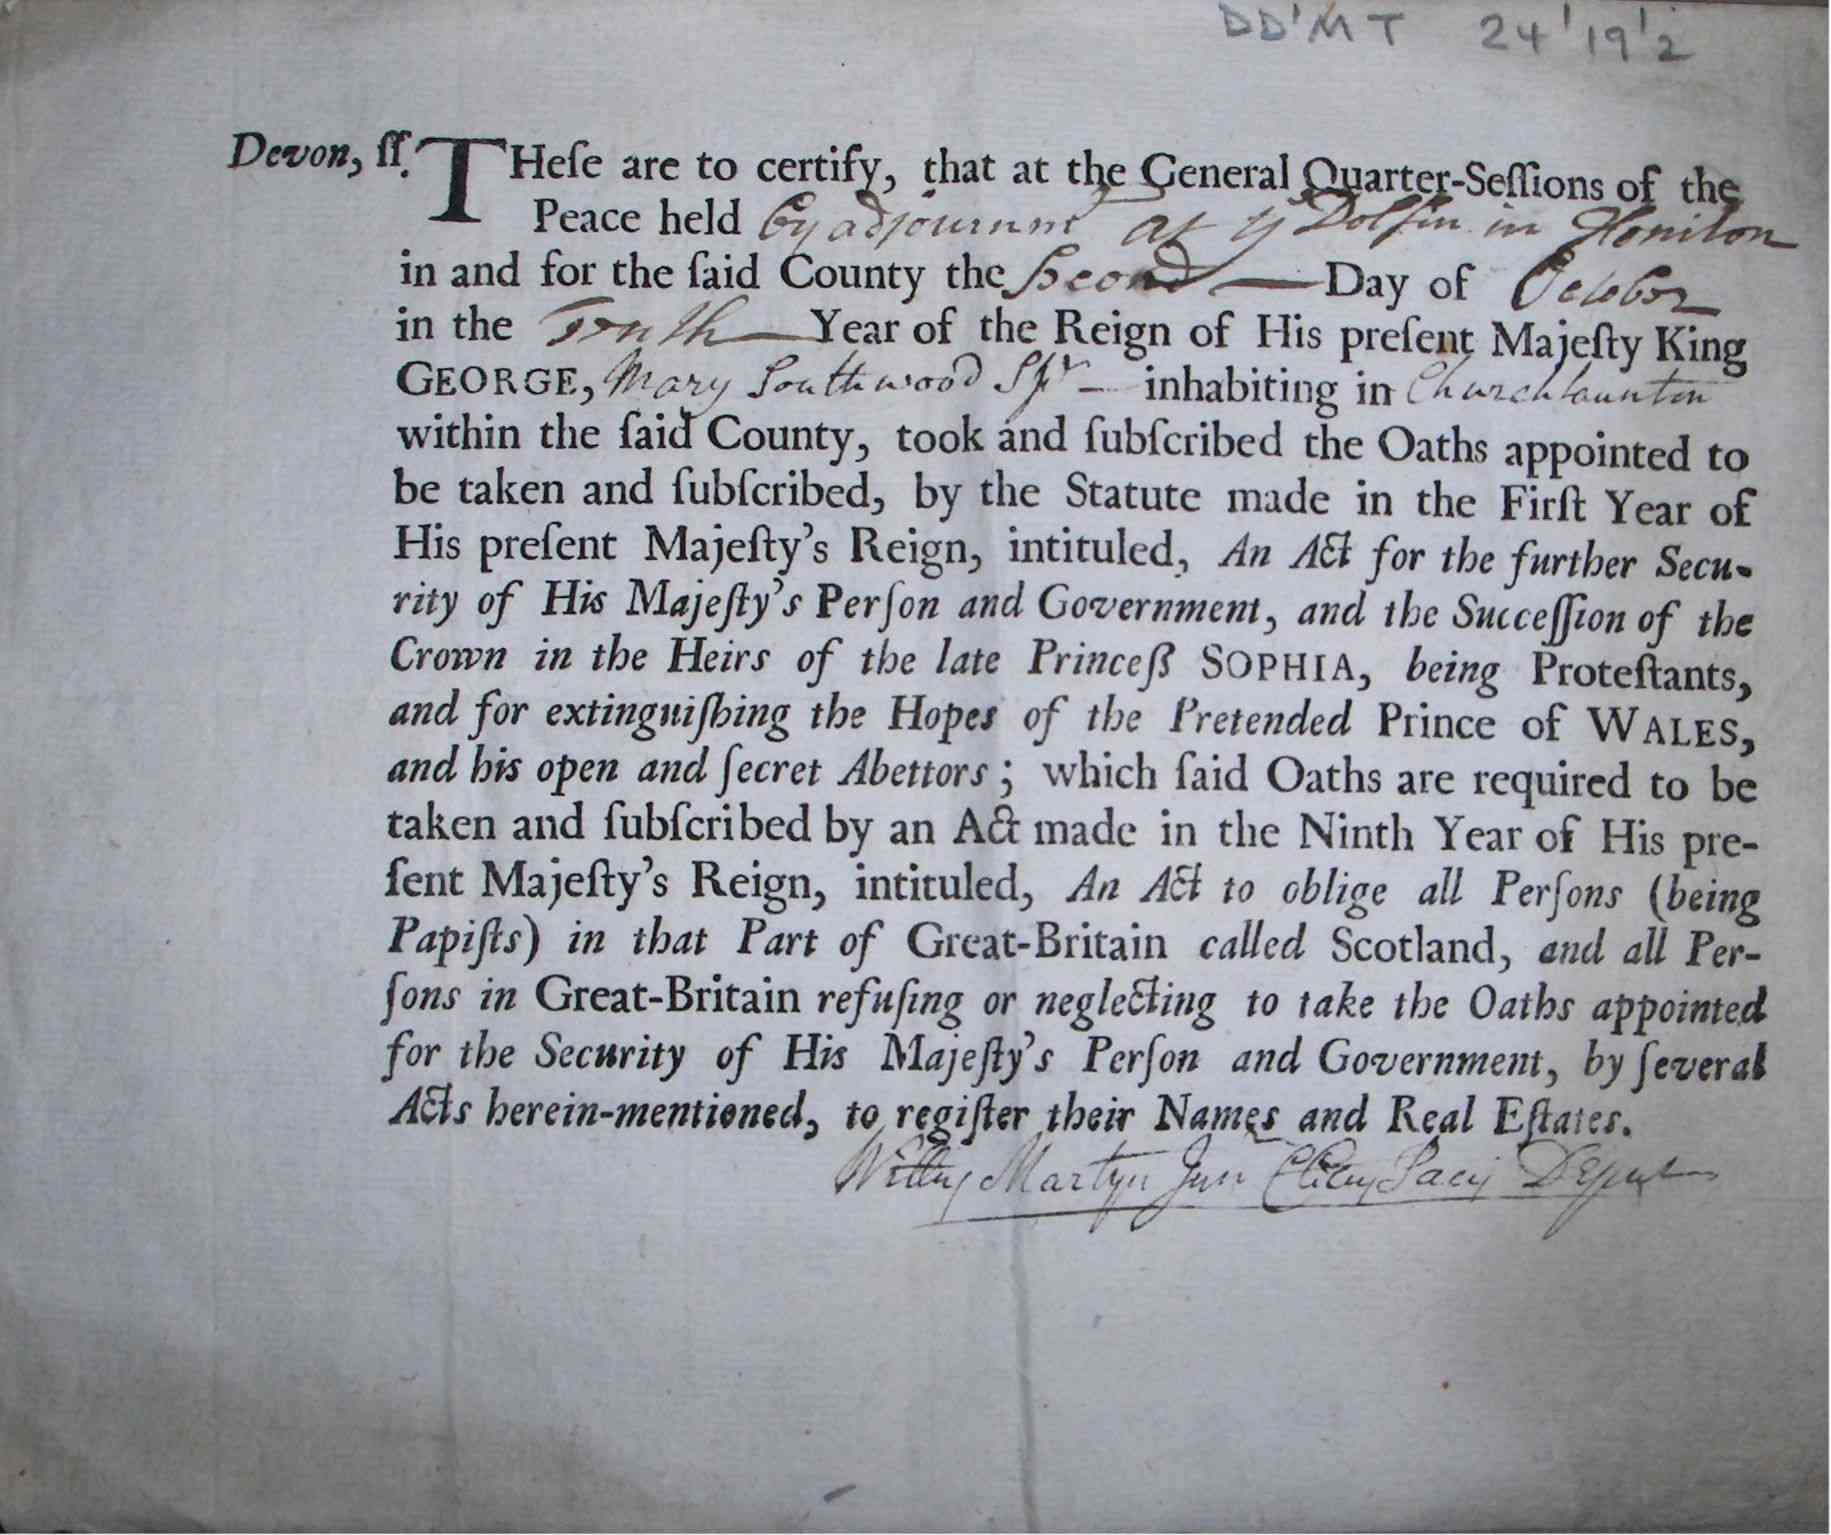 DD'MT 24'19'2
Devon, ſſ. THeſe are to certify, that at the General Quarter-Seſſions of the
Peace held by adjournmt at ye Dolfin in Honiton
in and for the ſaid County the Second — Day of October
in the Tenth Year of the Reign of His preſent Majeſty King
GEORGE, Mary Southwood Spr — inhabiting in Churchtaunton
within the ſaid County, took and ſubſcribed the Oaths appointed to
be taken and ſubſcribed, by the Statute made in the Firſt Year of
His preſent Majeſty's Reign, intituled, An Act for the further Secu-
rity of His Majeſty's Perſon and Government, and the Succeſſion of the
Crown in the Heirs of the late Princeſs SOPHIA, being Proteſtants,
and for extinguiſhing the Hopes of the Pretended Prince of WALES,
and his open and ſecret Abettors; which ſaid Oaths are required to be
taken and ſubſcribed by an Act made in the Ninth Year of His pre-
ſent Majeſty's Reign, intituled, An Act to oblige all Perſons (being
Papiſts) in that Part of Great-Britain called Scotland, and all Per-
ſons in Great-Britain refuſing or neglecting to take the Oaths appointed
for the Security of His Majeſty's Perſon and Government, by ſeveral
Acts herein-mentioned, to regiſter their Names and Real Eſtates.
Martyn Jun Pacis Deput